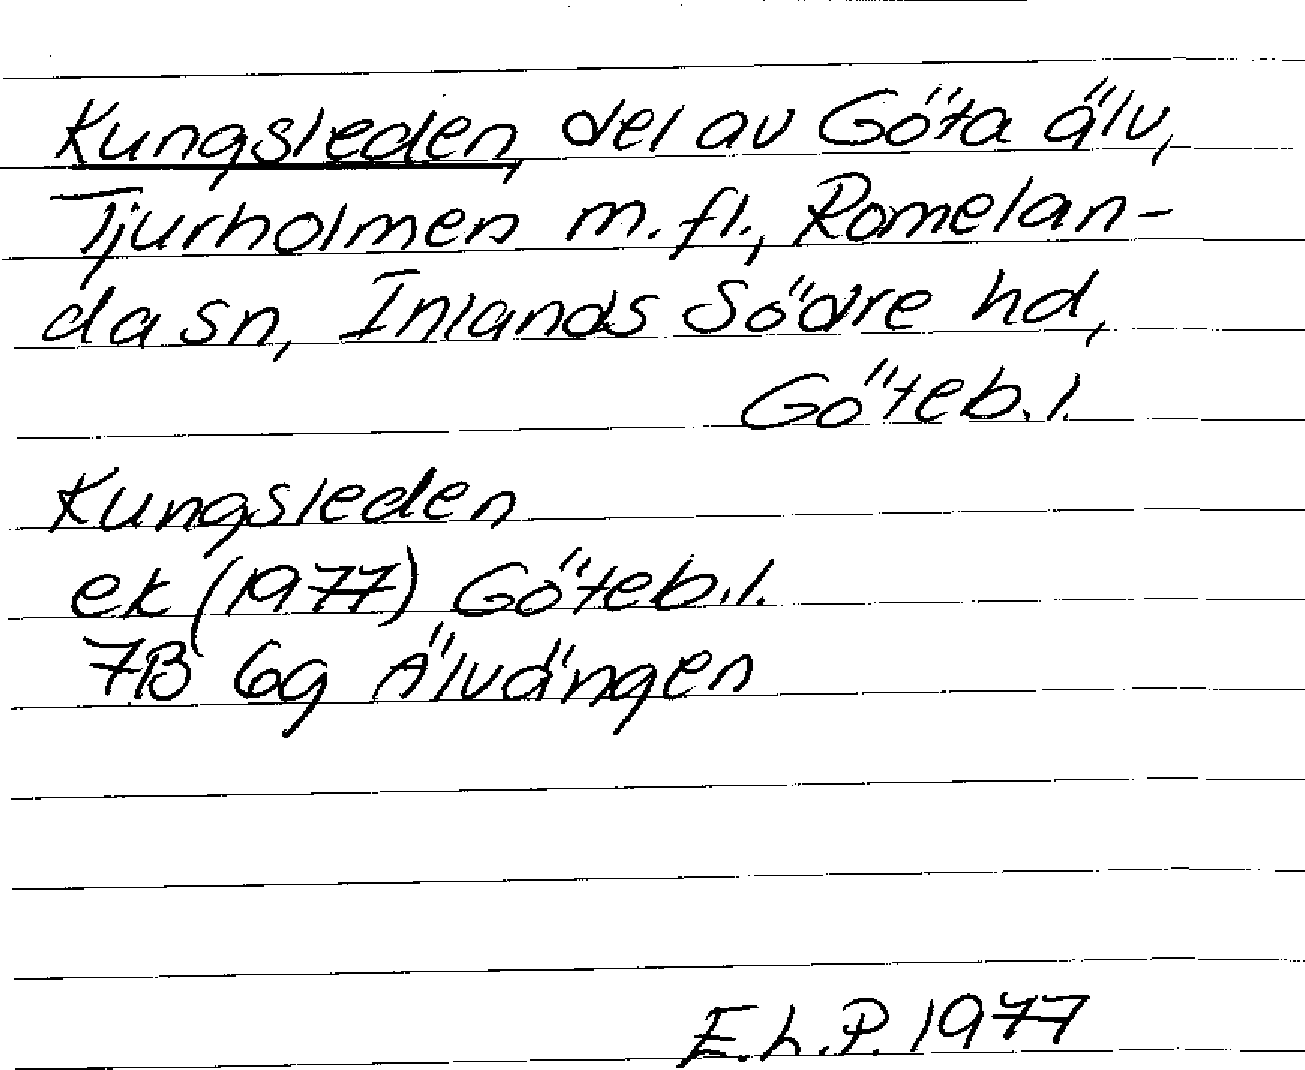 Kungsleden, del av Göta älv,
Tjurholmen m.fl., Romelan-
da sn, Inlands Södre hd,
Göteb.l.
Kungsleden
ek (1977) Göteb.l.
7B 6g Älvängen
E.L.P. 1977